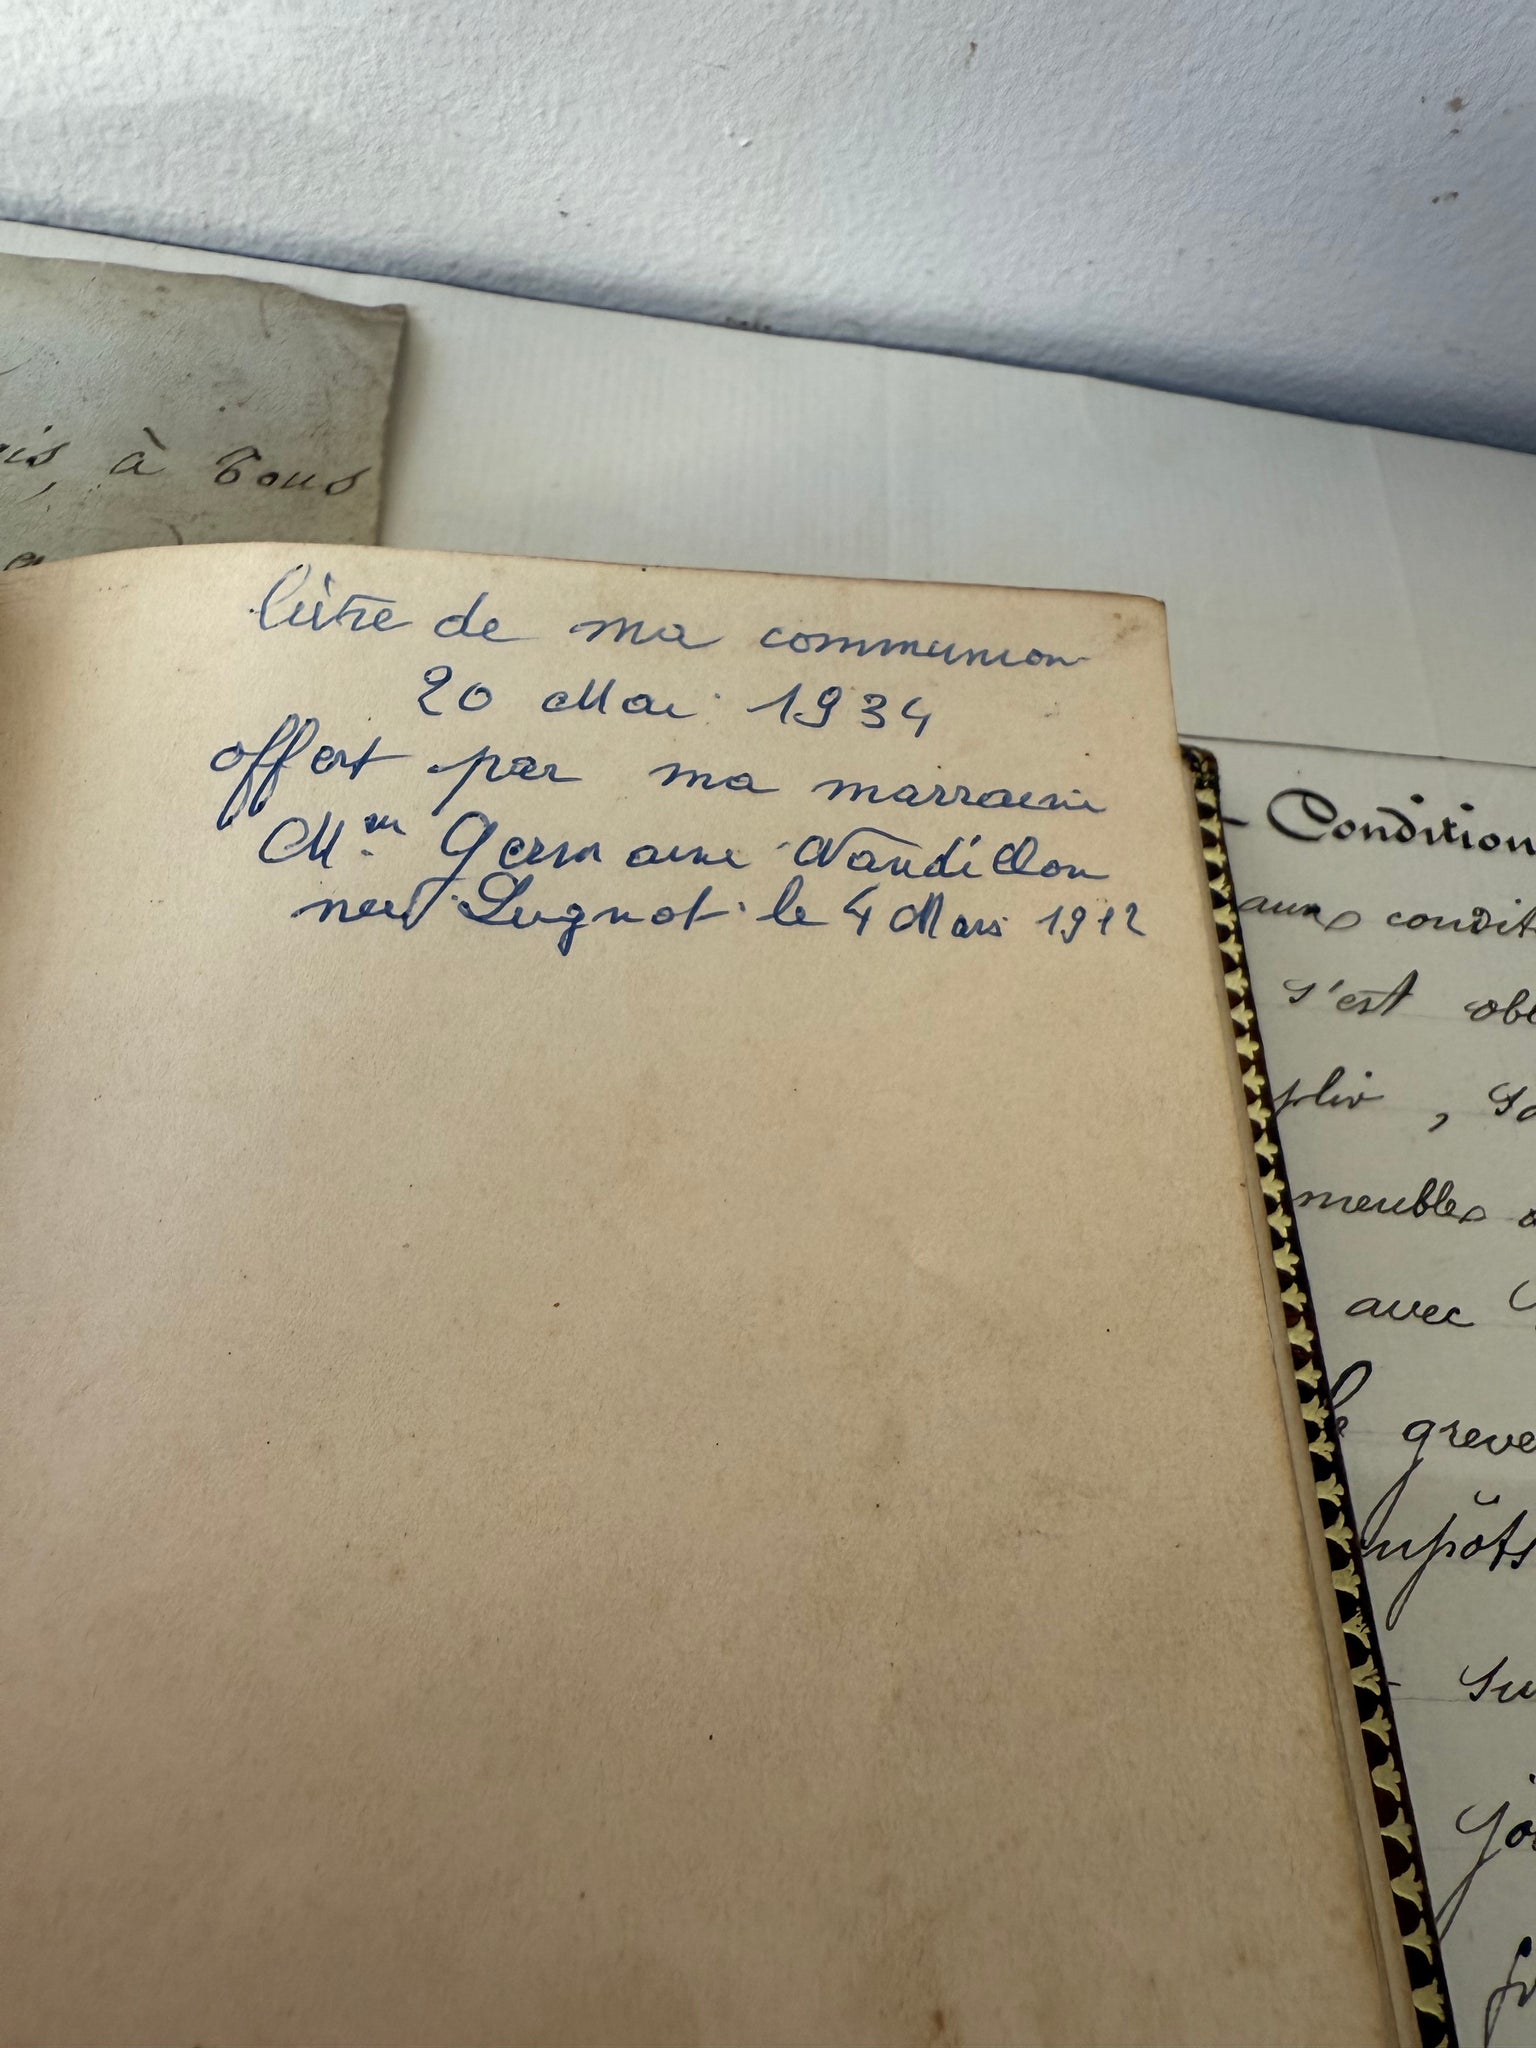 is, à Tous
livre de ma communion
20 Mai 1934
offert par ma marraine
Mme Germaine Vaudillon
neé Lugnot le 4 Mars 1912
- Condition
aux condit
s'est obl
plir, sa
meubles
avec
greve
impôts
su